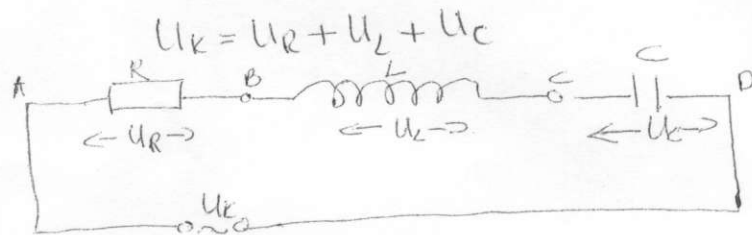 UK = UR + UL + UC
A R B L C C D
UR UL UC
UK